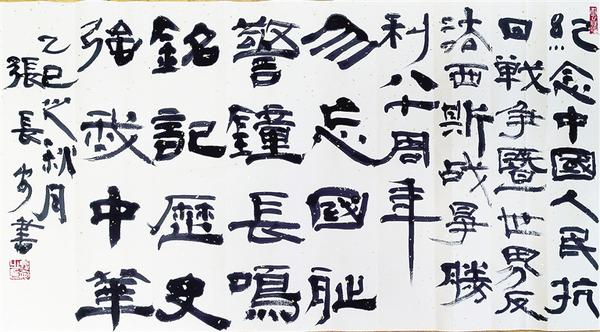 紀念中國人民抗
日戰争暨世界反
法西斯战爭勝
利八十周年
勿忘國耻
警鐘長鳴
銘記歷史
強我中華
乙巳之秋月
張長安書